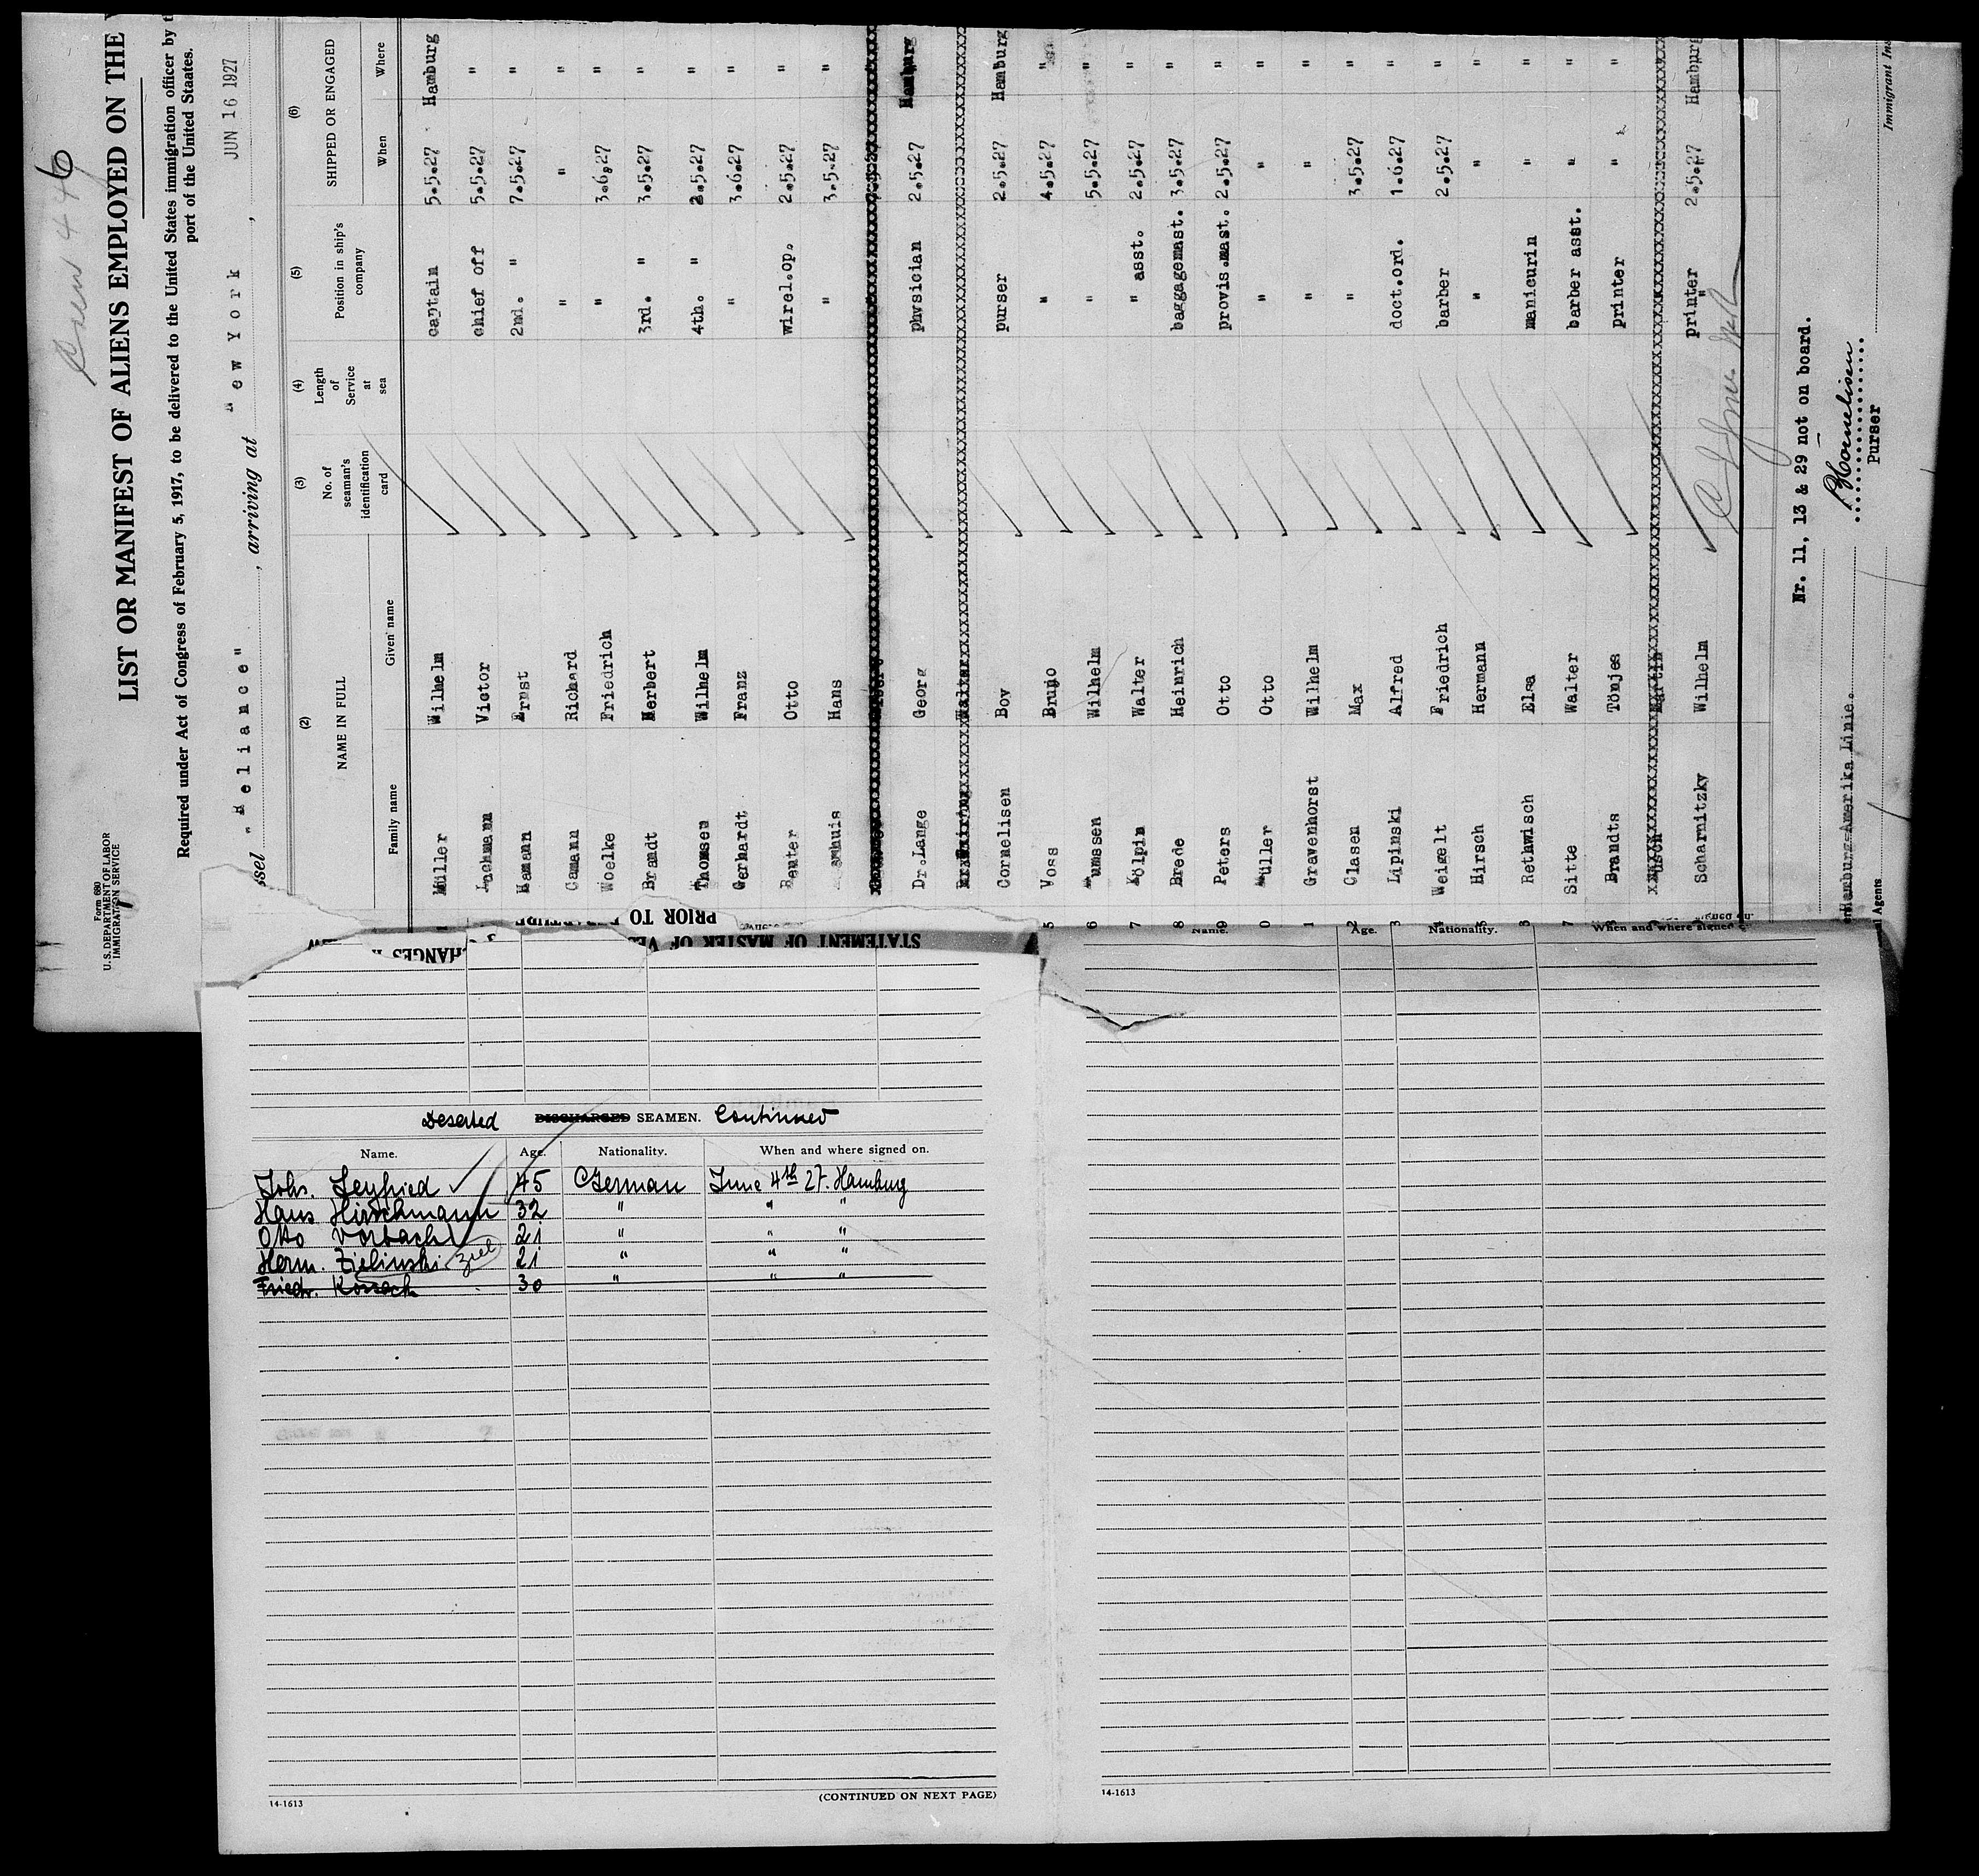 Form 680
U. S. DEPARTMENT OF LABOR
IMMIGRATION SERVICE
LIST OR MANIFEST OF ALIENS EMPLOYED ON THE
Required under Act of Congress of February 5, 1917, to be delivered to the United States immigration officer by
port of the United States.
"Reliance", arriving at New York, JUN 16 1927
(2) (3) (4) (5) (6)
NAME IN FULL No. of seaman's identification card Length of Service at sea Position in ship's company SHIPPED OR ENGAGED
Family name Given name When Where
Müller Wilhelm captain 5.5.27 Hamburg
Lachmann Victor chief off 5.5.27 "
Hamann Ernst 2nd. " 7.5.27 "
Camann Richard " " "
Woelke Friedrich " 3.6.27 "
Brandt Herbert 3rd. " 3.5.27 "
Thomsen Wilhelm 4th. " 2.5.27 "
Gerhardt Franz " 3.6.27 "
Reuter Otto wirel.op. 2.5.27 "
Hans " 3.5.27 "
Dr.Lange Georg physician 2.5.27 Hamburg
Cornelisen Boy purser 2.5.27 Hamburg
5 Voss Bruno " 4.5.27 "
6 Wilhelm " 5.5.27 "
7 Kölpin Walter " asst. 2.5.27 "
8 Brede Heinrich baggagemast. 3.5.27 "
9 Peters Otto provis.mast. 2.5.27 "
0 Müller Otto " " "
1 Gravenhorst Wilhelm " " "
2 Clasen Max " 3.5.27 "
3 Lipinski Alfred doct.ord. 1.6.27 "
4 Weigelt Friedrich barber 2.5.27 "
5 Hirsch Hermann " " "
6 Rethwisch Elsa manicurin " "
7 Sitte Walter barber asst. " "
8 Brandts Tönjes printer " "
Scharnitzky Wilhelm printer 2.5.27 Hamburg
Nr. 11, 13 & 29 not on board.
Hamburg-Amerika Linie.
BCornelisen
Purser
Agents
Immigrant Ins
PRIOR TO
STATEMENT OF MASTER OF
Name. Age. Nationality. When and where signed
Deserted DISCHARGED SEAMEN. Continued
Name. Age. Nationality. When and where signed on.
Johs. Seyfried 45 German June 4th 27. Hamburg
Hans Hirschmann 32 " " "
Otto Vorbach 21 " " "
Herm. Zielinski 21 " " "
Friedr. Kossack 30 " " "
14-1613
(CONTINUED ON NEXT PAGE)
14-1613